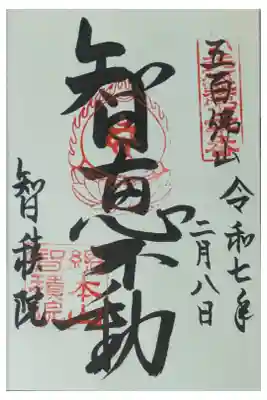 五百佛山
令和七年
二月八日
智恵不動
智積院
総本山
智積院